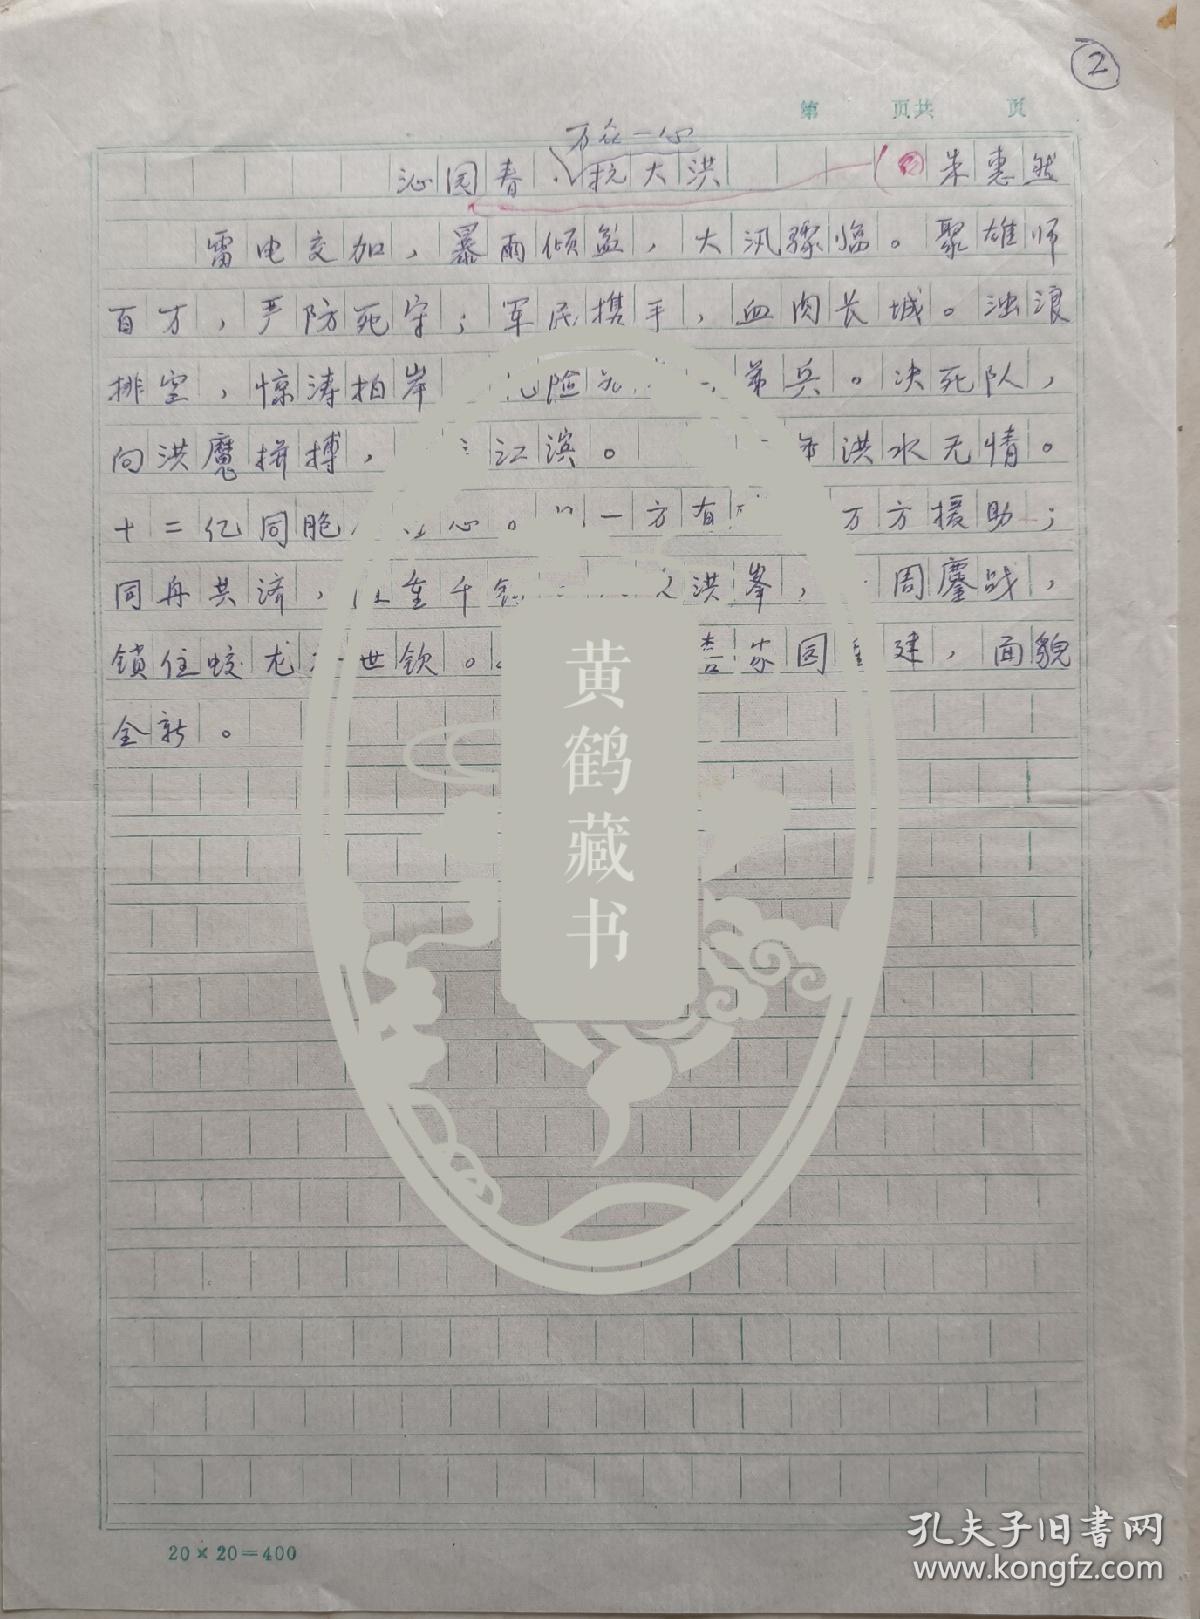 2
第 页共 页
万众一心
沁园春·抗大洪 朱惠然
雷电交加，暴雨倾盆，大汛骤临。聚雄师
百万，严防死守；军民携手，血肉长城。浊浪
排空，惊涛拍岸 险 弟兵。决死队，
向洪魔拼搏， 江滨。 洪水无情。
十二亿同胞 心。 一方有 万方援助；
同舟共济， 重千 洪峰， 周鏖战，
锁住蛟龙 世钦。 喜家园重建，面貌
全新。
黄鹤藏书
20×20=400
孔夫子旧书网
www.kongfz.com